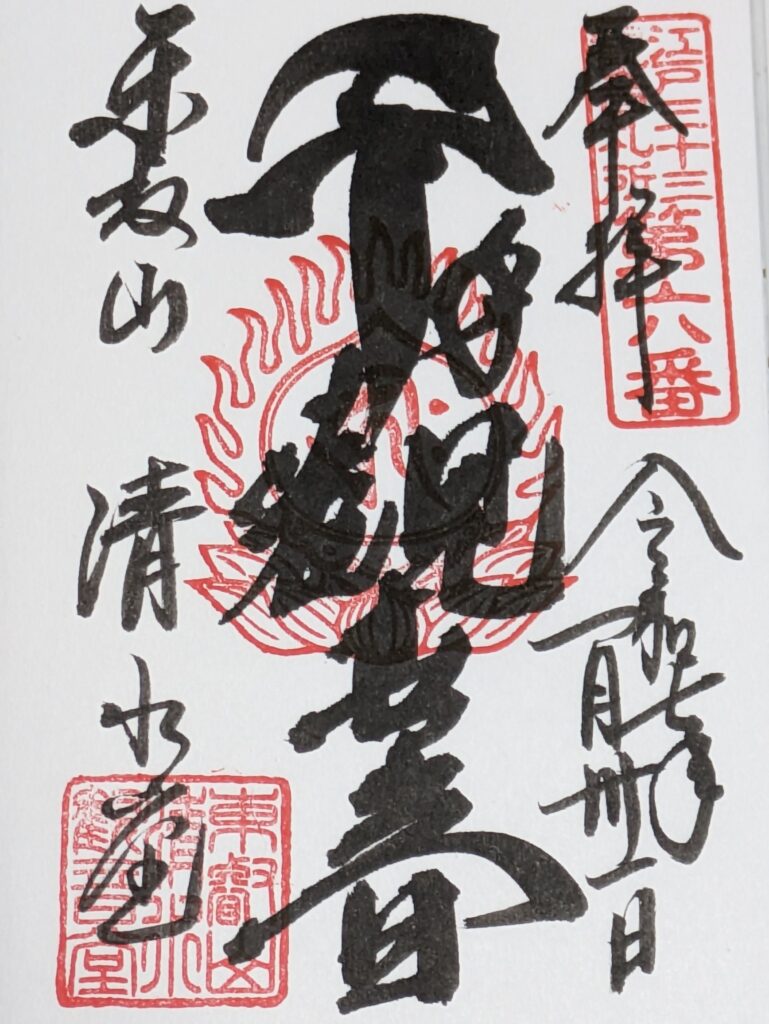 奉拝
江戸三十三
観音札所
第六番
令和七年
一月卅一日
千手観世音
東叡山
清水堂
東叡山
清水
観音堂